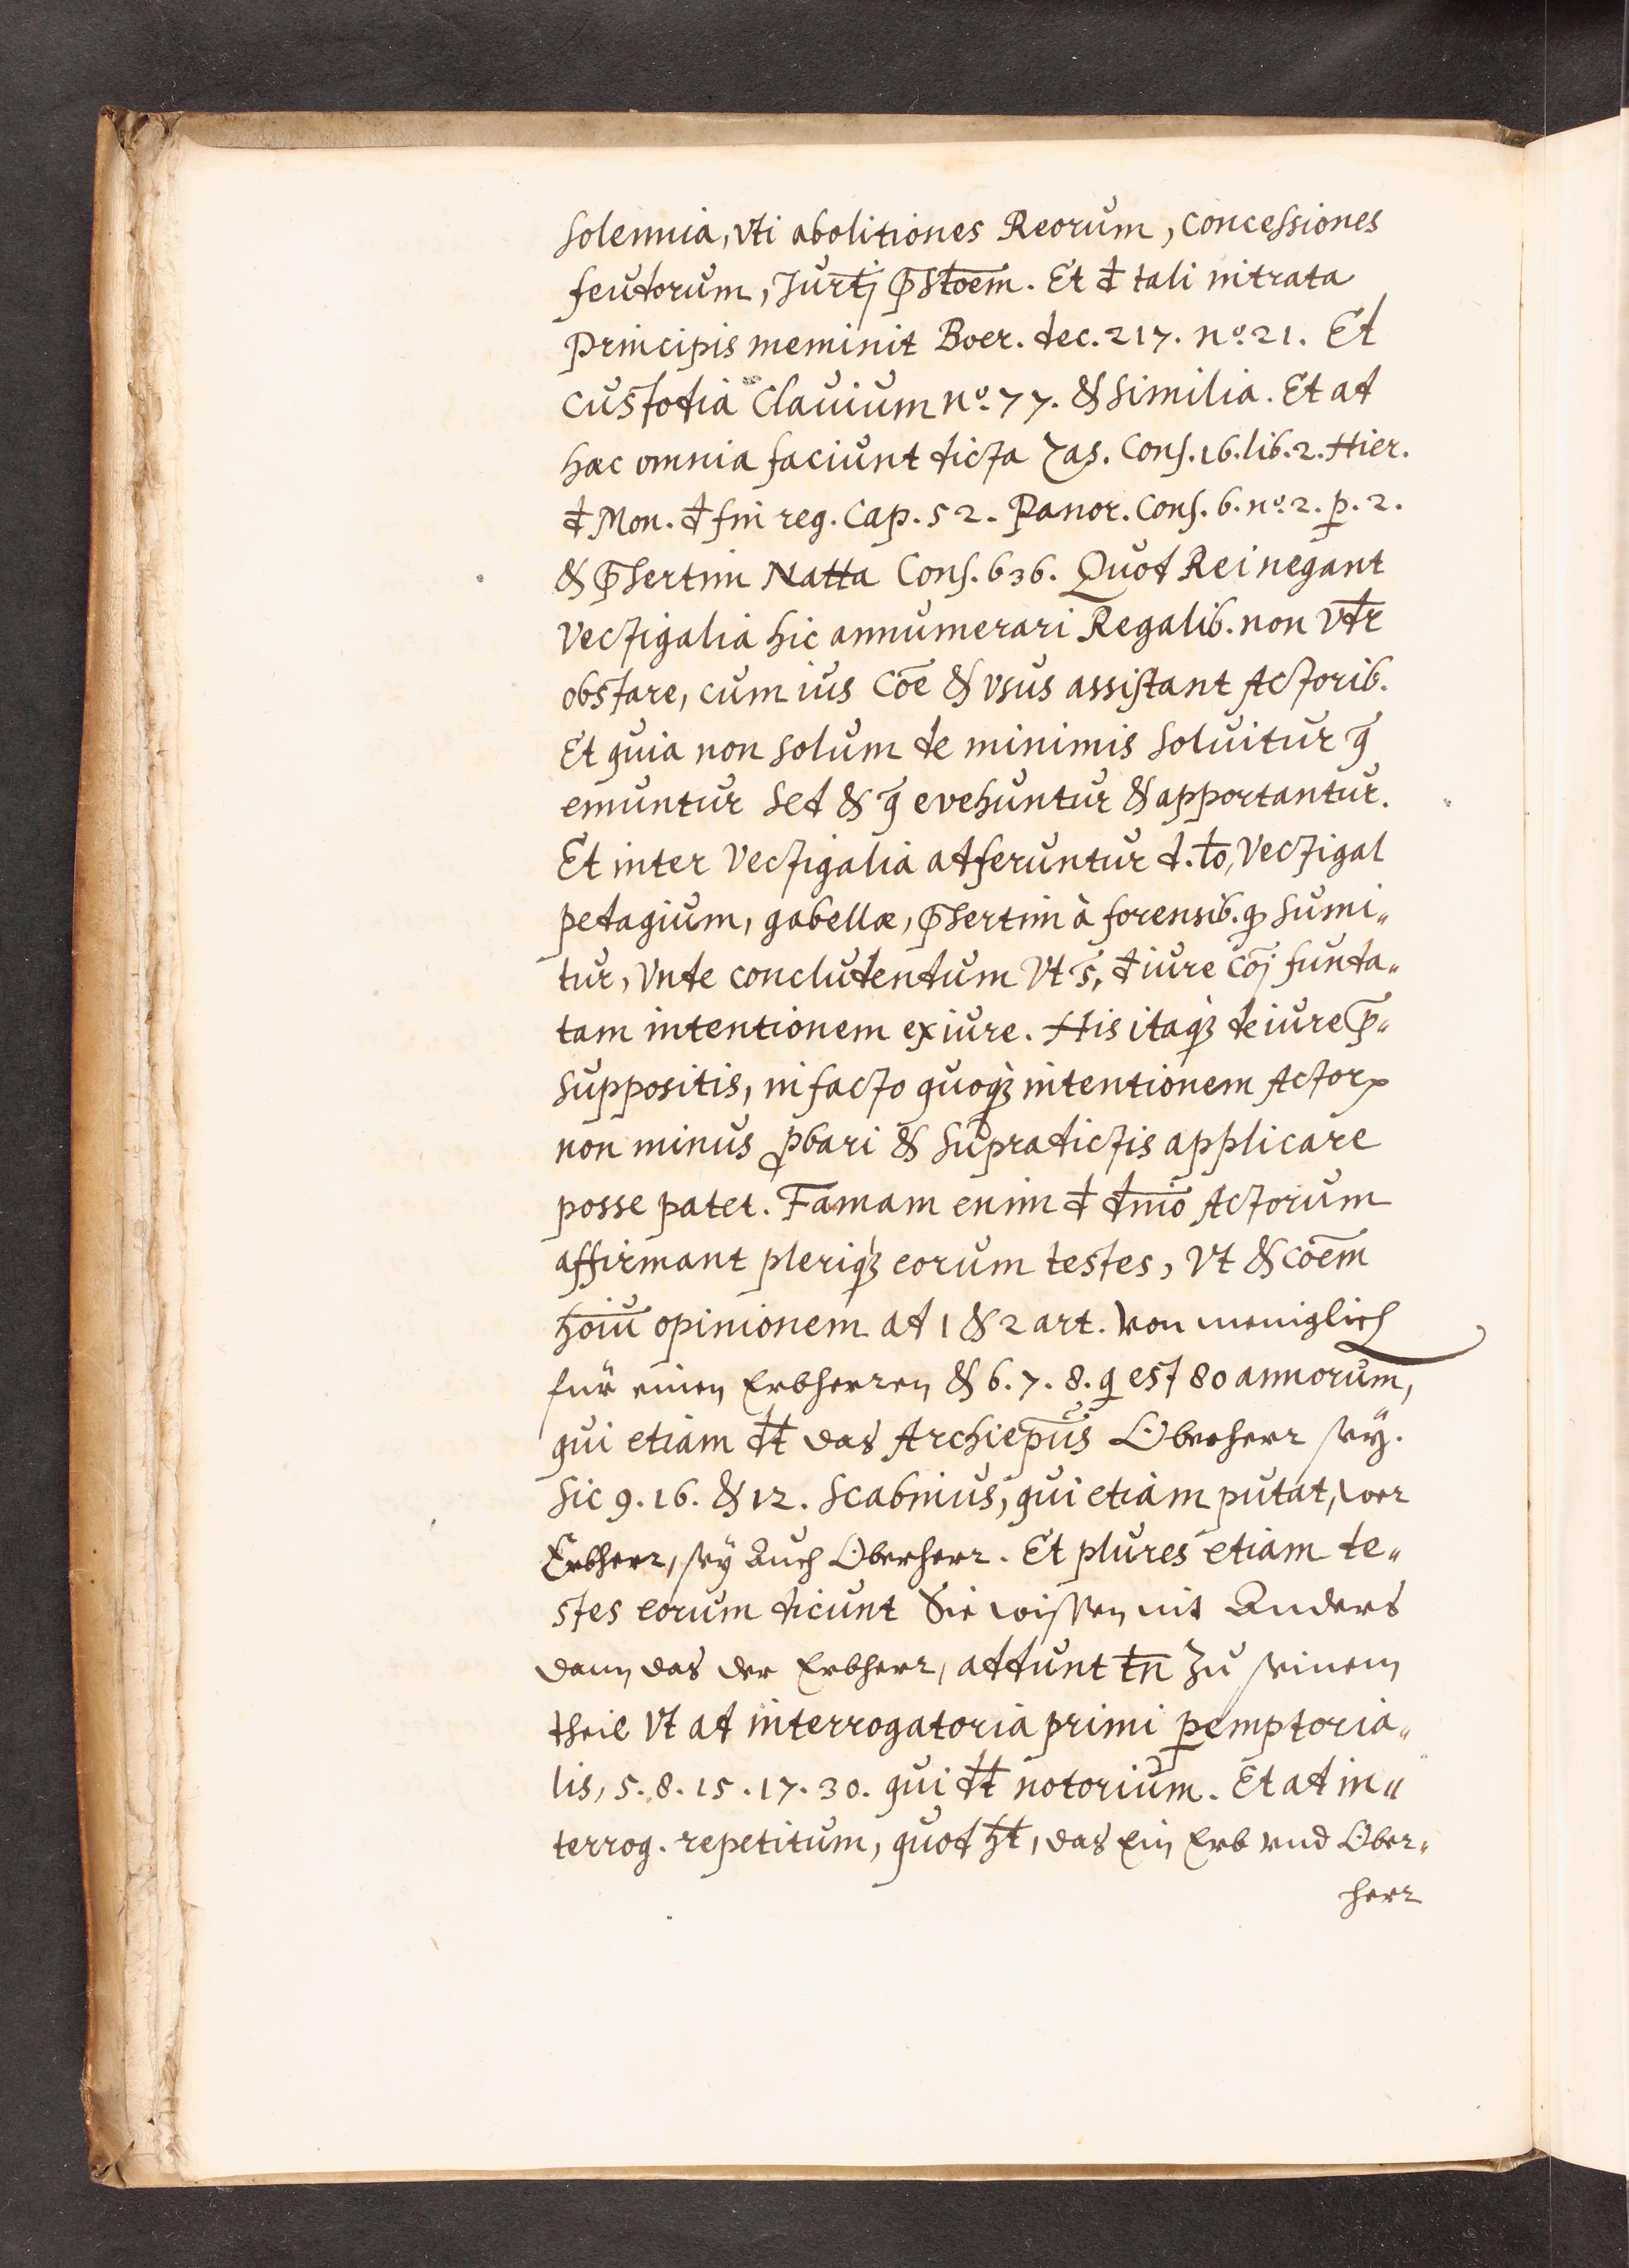 solennia, vti abolitiones Reorum, concessiones
feudorum, Jurt̄j p̄stōem. Et đ tali intrata
principis meminit Boer. dec. 217. nº. 21. Et
custodia clauium nº. 77. & similia. Et ad
hæc omnia faciunt dicta Zas. Cons. 16. lib. 2. Hier.
đ Mon. đ fin reg. Cap. 52. Panor. Cons. 6. nº. 2. p. 2.
& p̄sertim Natta Cons. 636. Quod Rei negant
Vectigalia hic annumerari Regalib. non vđr
obstare, cum ius cōe & vsus assistant Actorib.
Et quia non solum de minimis soluitur q̄
emuntur sed & q̄ evehuntur & apportantur.
Et inter Vectigalia adferuntur d. t̄o, Vectigal
pedagium, gabellæ, p̄sertim à forensib. q sumi„
tur, Vnde concludendum Vt s̄, đ iure cōj funda„
tam intentionem ex iure. His itaq̢ de iure p̄„
suppositis, in facto quoq̢ intentionem Actorꝝ
non minus ꝓbari & supradictis applicare
posse patet. Famam enim đ đnīo Actorum
affirmant pleriq̢ eorum testes, Vt & cōem
hōiū opinionem ad 1 & 2 art. Von meniglich
fur einen Erbherren & 6. 7. 8. q est 80 annorum,
qui etiam đt das Archiep̄us Oberherr sey.
Sic 9. 16. & 12. Scabinus, qui etiam putat, wer
Erbherr, sey Auch Oberherr. Et plures etiam te„
stes eorum dicunt Sie wissen nit Anders
dann das der Erbherr, addunt t̄n zu seinem
theil Vt ad interrogatoria primi ꝑemptoria„
lis, 5. 8. 15. 17. 30. qui đt notorium. Et ad in„
terrog. repetitum, quod ħt, das Ein Erb vnd Ober„
herr